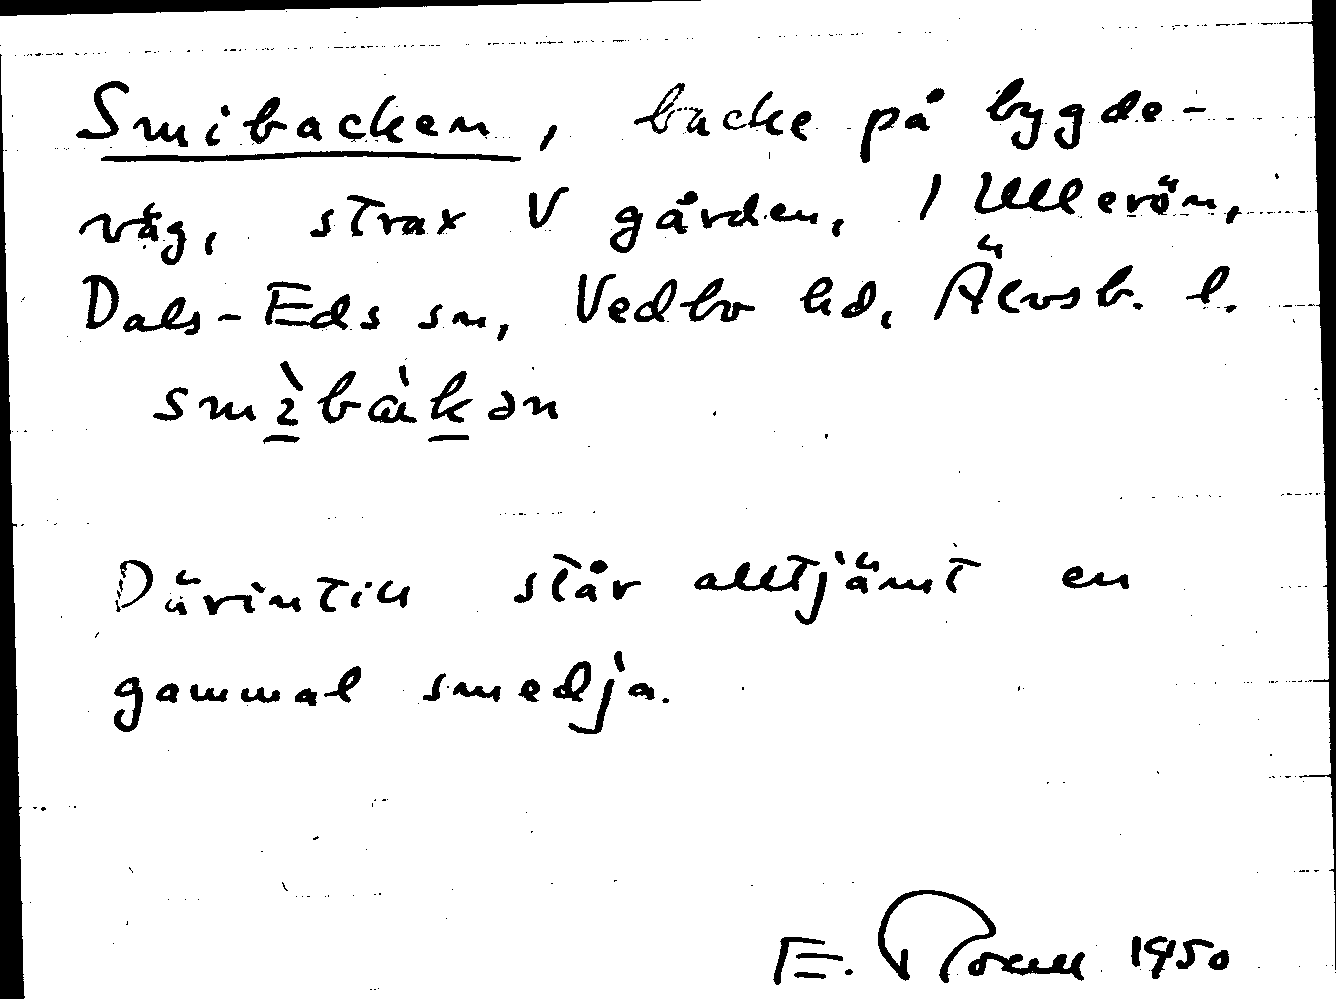 Smibacken, backe på bygde-
väg, strax V gården, 1 Ullerön,
Dals-Eds sn, Vedbo hd, Älvsb. l.
smì̱bàḵən
Därintill står alltjämt en
gammal smedja.
E. 1950